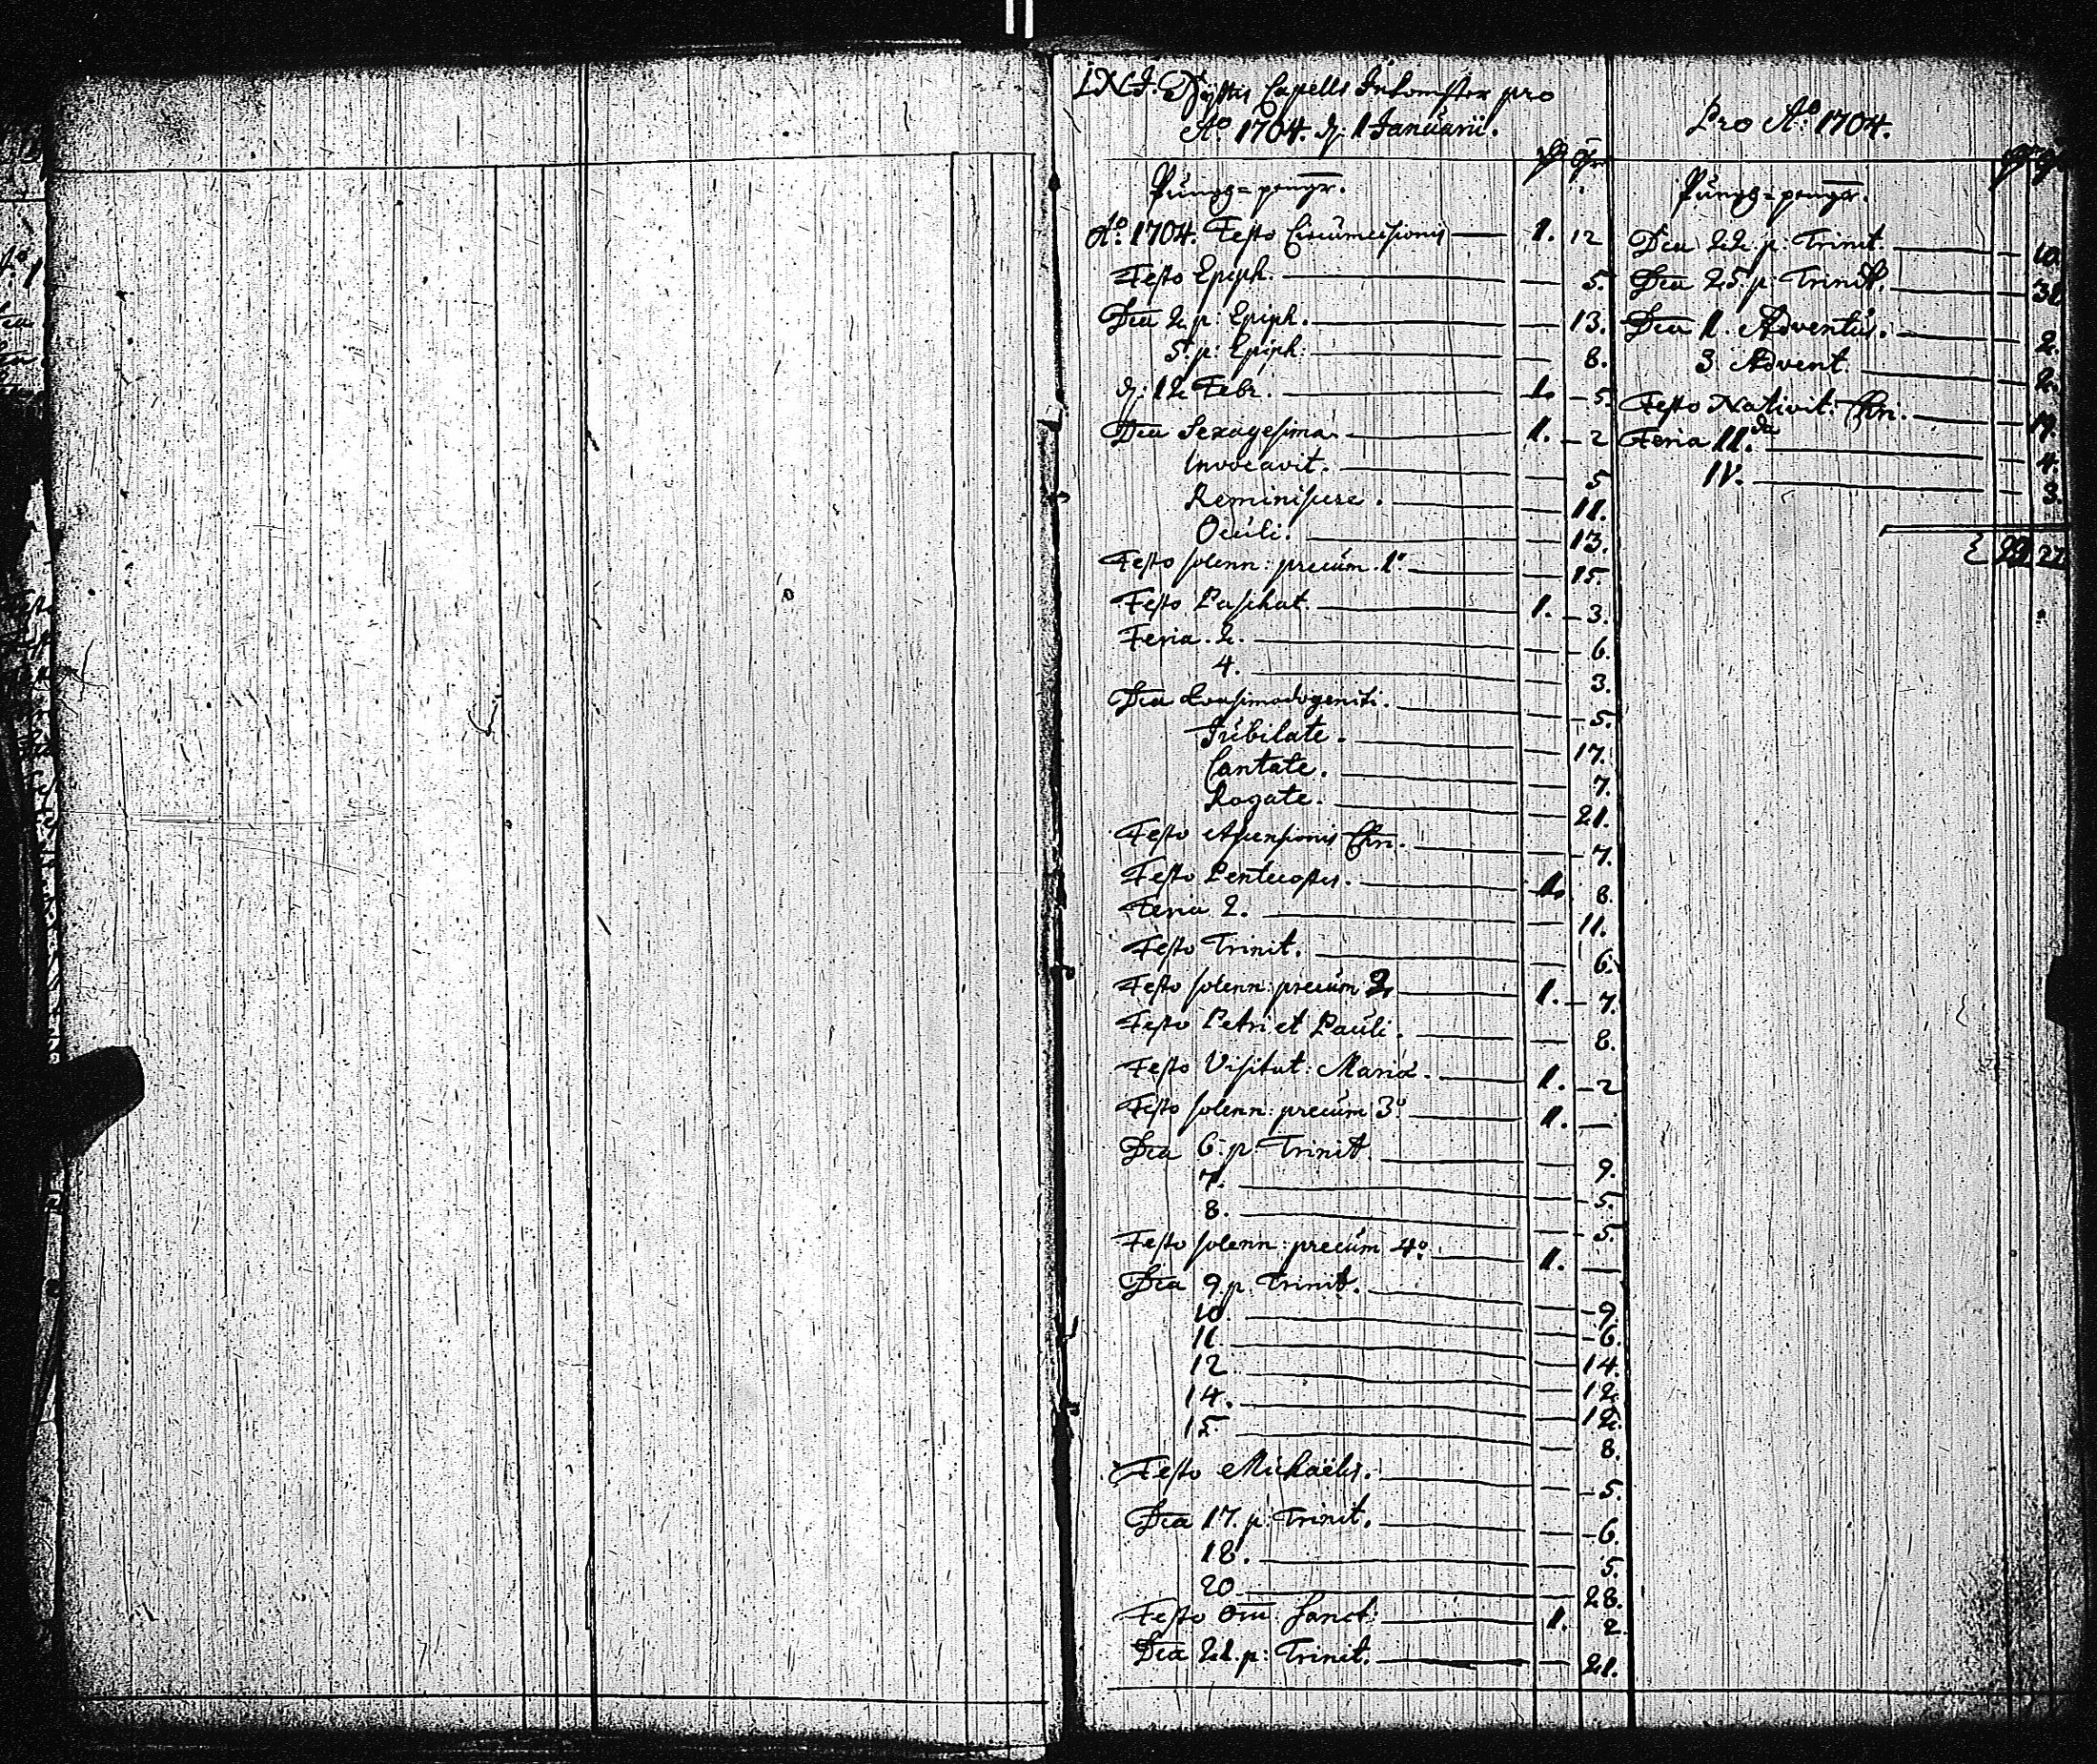 I.N.J. Capells Inkomster pro
Ao. 1704. d: 1 Januarii.
Pungg=pengar.
Ao. 1704. Festo Circumcisionis — 1. 12
Festo Epiph. — 5.
Dca 2 p: Epiph. — 13.
5. p: Epiph: — 8.
d: 12 Febr. — 1. 5.
Dca Sexagesima — 1. 2
Invocavit. — 5
Reminiscere. — 11.
Oculi. — 13.
Festo solenn: precum. 1o — 15.
Festo Paschat. — 1. 3.
Feria. 2. — 6.
4. — 3.
Dca Quasimodogeniti. — 5.
Jubilate. — 17.
Cantate. — 7.
Rogate. — 21.
Festo Ascensionis Chri. — 7.
Festo Pentecostes. — 1. 8.
Feria 2. — 11.
Festo Trinit. — 6.
Festo solenn: precum 2 — 1. 7.
Festo Petri et Pauli. — 8.
Festo Visitat: Mariæ. — 1. 2
Festo solenn: precum 3o — 1. —
Dca 6. p: Trinit. — 9.
7. — 5.
8. — 5.
Festo solenn: precum 4o. — 1. —
Dca 9. p. Trinit. — 9.
10. — 6.
11. — 14.
12. — 12.
14. — 12.
15 — 8.
Festo Michaëlis. — 5.
Dca 17. p: Trinit. — 6.
18. — 5.
20. — 28.
Festo Om. Sanct: — 1. 2
Dca 21. p: Trinit. — 21.
Pro Ao. 1704.
Pungg=pengar.
Dca 22 p: Trinit. — 10.
Dca 25. p: Trinit. — 31
Dca 1. Adventus. — 2.
3 Advent. — 2.
Festo Nativit: Chri. — 19.
Feria II.da — 4.
IV. — 3.
22 22